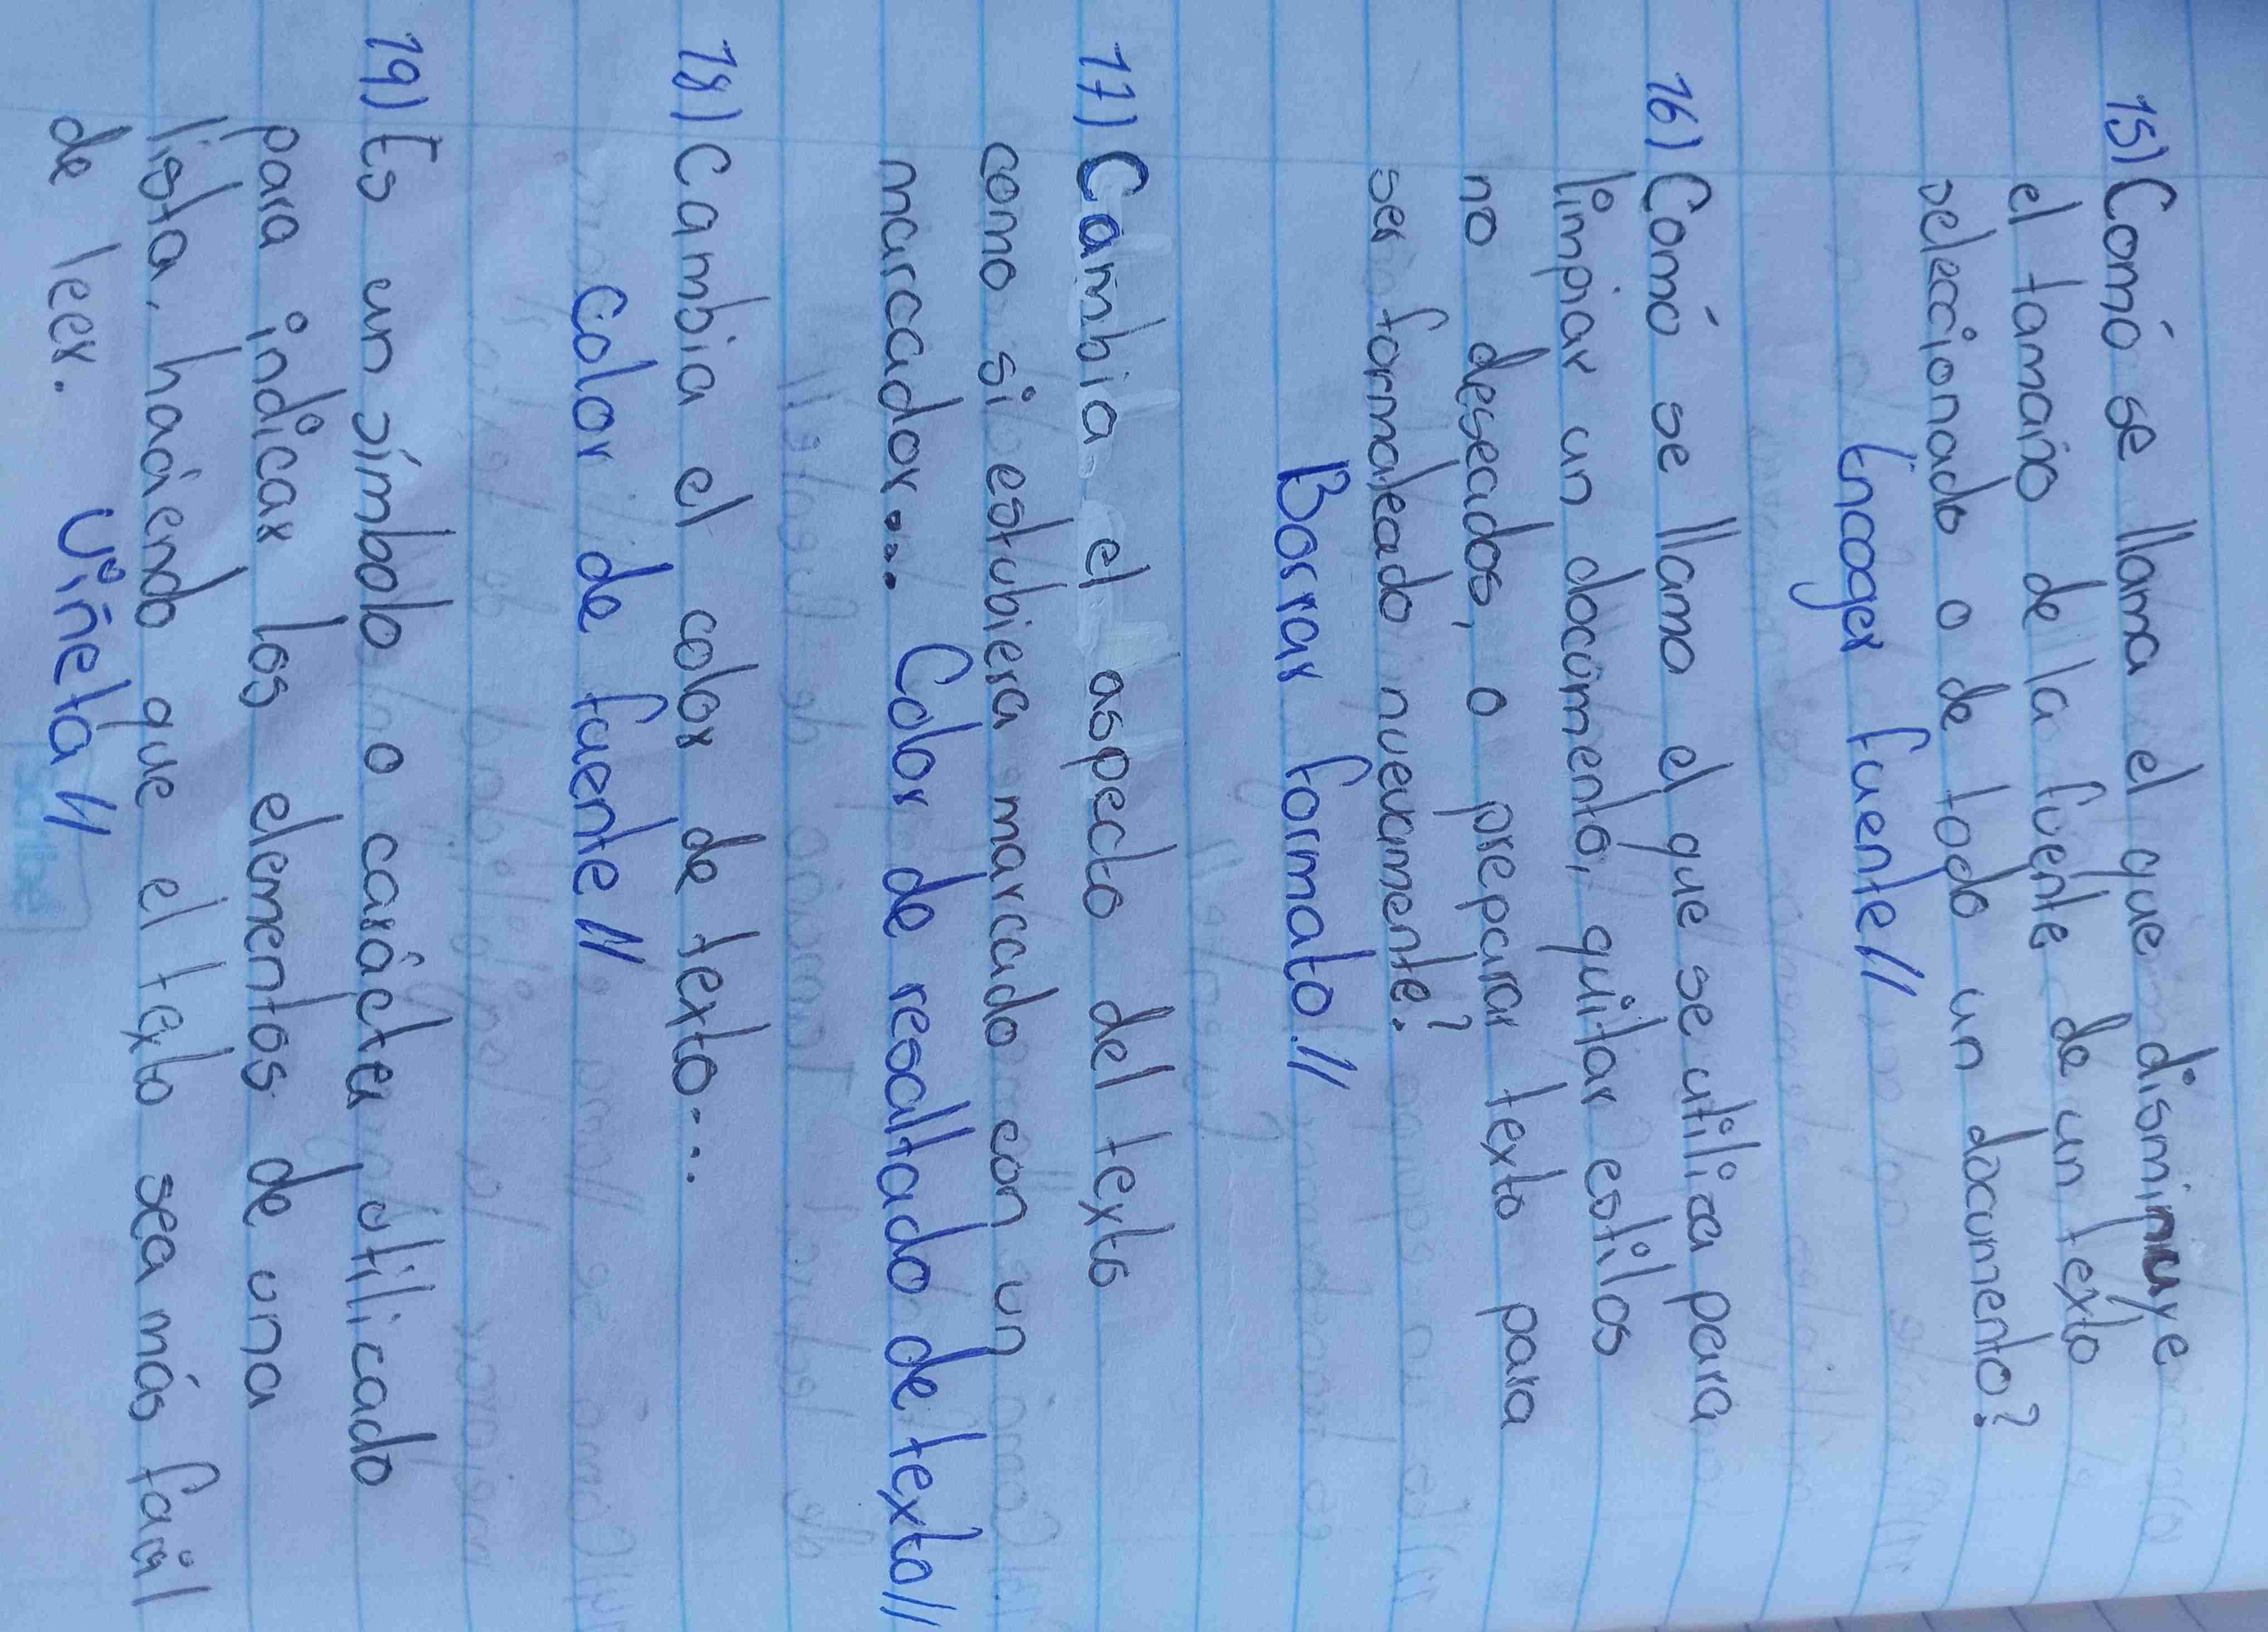 15) Comó se llama el que disminuye
el tamaño de la fuente de un texto
seleccionado o de todo un documento?
Encoger fuente//
16) Comó se llama el que se utiliza para
limpiar un documento, quitar estilos
no deseados, o preparar texto para
ser formateado nuevamente?
Borrar formato.//
17) Cambia el aspecto del texto
como si estubiera marcado con un
marcador... Color de resaltado de texto//
18) Cambia el color de texto...
Color de fuente//
19) Es un símbolo o carácter utilicado
para indicar los elementos de una
lista, haciendo que el texto sea más fácil
de leer. Viñeta//